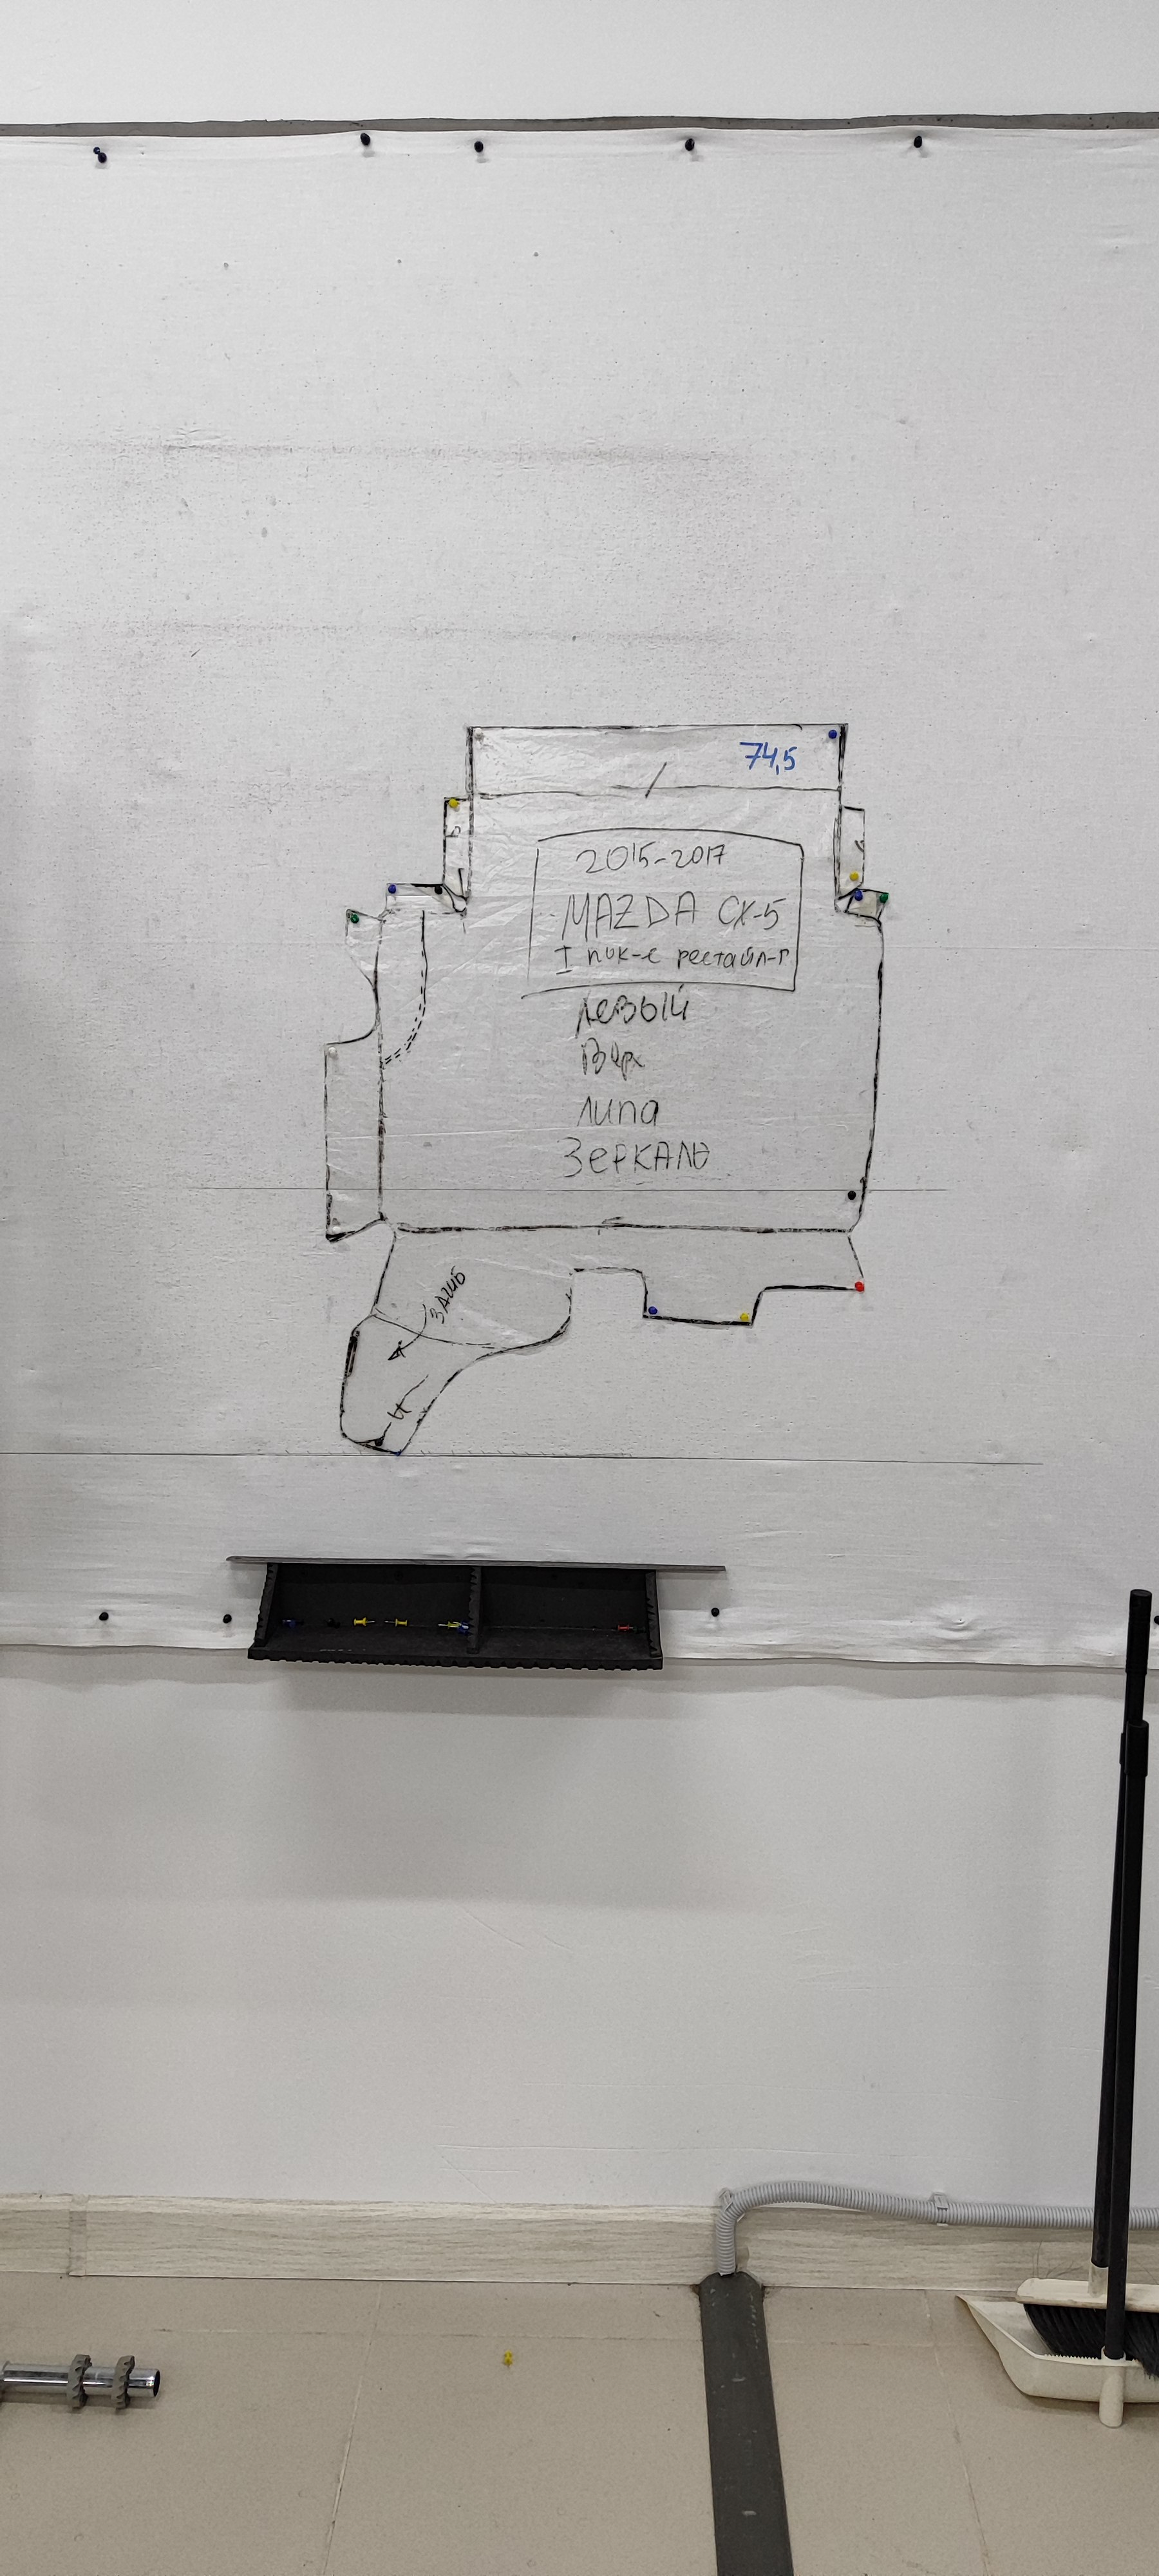 74,5
2015-2017
MAZDA CX-5
I пок-е рестайл-г
левый
Верх
липа
ЗеРКАЛО
ЗАГИБ